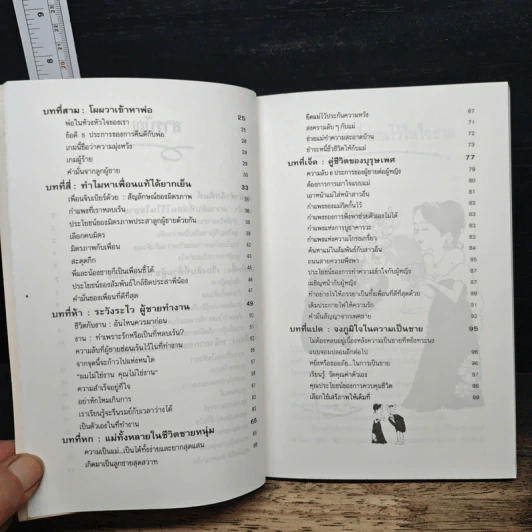 บทที่สาม : โผผวาเข้าหาพ่อ 25
พ่อในห้วงหัวใจของเรา 25
ข้อดี 5 ประการของการคืนดีกับพ่อ
เกมนี้ชื่อว่าความมุ่งหวัง
เกมผู้ร้าย
คำมั่นจากลูกผู้ชาย
บทที่สี่ : ทำไมหาเพื่อนแท้ได้ยากเย็น 33
เพื่อนจิบเบียร์ด้วย : สัญลักษณ์ของมิตรภาพ
กำแพงที่เราหลบเร้น
ประโยชน์ของมิตรภาพประสาลูกผู้ชายด้วยกัน
เลือกคบมิตร
มิตรภาพกับเพื่อน
สะดุดกึก
พี่และน้องชายก็เป็นเพื่อนซี้ได้
ประโยชน์ของสัมพันธ์ใกล้ชิดประสาพี่น้อง
คำมั่นของเพื่อนที่ดีที่สุด
บทที่ห้า : ระวังระไว ผู้ชายทำงาน 49
ชีวิตกับงาน : อันไหนควรมาก่อน
งาน : ทำเพราะรักหรือเป็นที่หลบเร้น?
ความลับที่ผู้ชายซ่อนเร้นไว้ในที่ทำงาน
จากจุดนี้จะก้าวไปแห่งหนใด
"ผมไม่ใช่งาน คุณไม่ใช่งาน"
ความสำเร็จอยู่ที่ใจ
อย่าหักโหมเกินการ
เราเรียนรู้จะรื่นรมย์กับเวลาว่างได้
เป็นตัวเองในที่ทำงาน
บทที่หก : แม่ทั้งหลายในชีวิตชายหนุ่ม 65
ความเป็นแม่...เป็นได้ทั้งง่ายและยากสุดแสน
เกิดมาเป็นลูกชายสุดสวาท
ยึดแม่ไว้ประกันความหวัง 67
สงครามลับ ๆ กับแม่ 71
ช่วยแม่ทำความสะอาดบ้าน 72
ชำระหนี้ชั่วชีวิตให้กับแม่ 73
บทที่เจ็ด : คู่ชีวิตของบุรุษเพศ 77
ความลับ 6 ประการของผู้ชายต่อผู้หญิง
ต้องการการเอาใจแบบแม่
เอาหน้าแม่ใส่หน้าสาวอื่น
กำแพงของแม่กีดกั้นไว้
กำแพงของการพึ่งพาช่วยตัวเองไม่ได้
กำแพงแห่งการบูชาคารวะ
กำแพงแห่งความโกรธเกรี้ยว
ค้นหาแม่ในสัมพันธ์กับสาวอื่น
ถนนสายความพึงพา
ประโยชน์ของการทำความเข้าใจกับผู้หญิง
เผชิญหน้ากับผู้หญิง
ทำอย่างไรให้ภรรยาเป็นทั้งเพื่อนที่ดีที่สุดด้วย
เติมประกายไฟให้ความรัก
คำมั่นสัญญาจากเพศชาย
บทที่แปด : จงภูมิใจในความเป็นชาย 95
ไม่ต้องหลบอยู่เบื้องหลังความเป็นชายที่หยิ่งทระนง
แบบจอมปลอมอีกต่อไป 96
หยิ่งหรือธอรงภัย...ในการเป็นชาย 96
เรียนรู้ วัดคุณค่าตัวเอง 98
คุณประโยชน์ของการควบคุมชีวิต 98
เลือกใช้เสรีภาพให้เต็มที่ 99